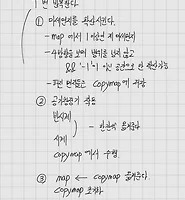 1번 반복한다.
① 미세먼지를 확산시킨다.
- map에서 1 이상인 게 미세먼지
- 4방향을 보며 범위를 넘지 않고
&& '-1'이 아닌 공간으로 만 확산가능
- 확산 먼지들은 copymap에 저장
② 공기청정기 작동
반시계
시계
- 한칸씩 옮겨준다
copymap에서 수행
③ map ← copymap 옮겨준다.
copymap 초기화